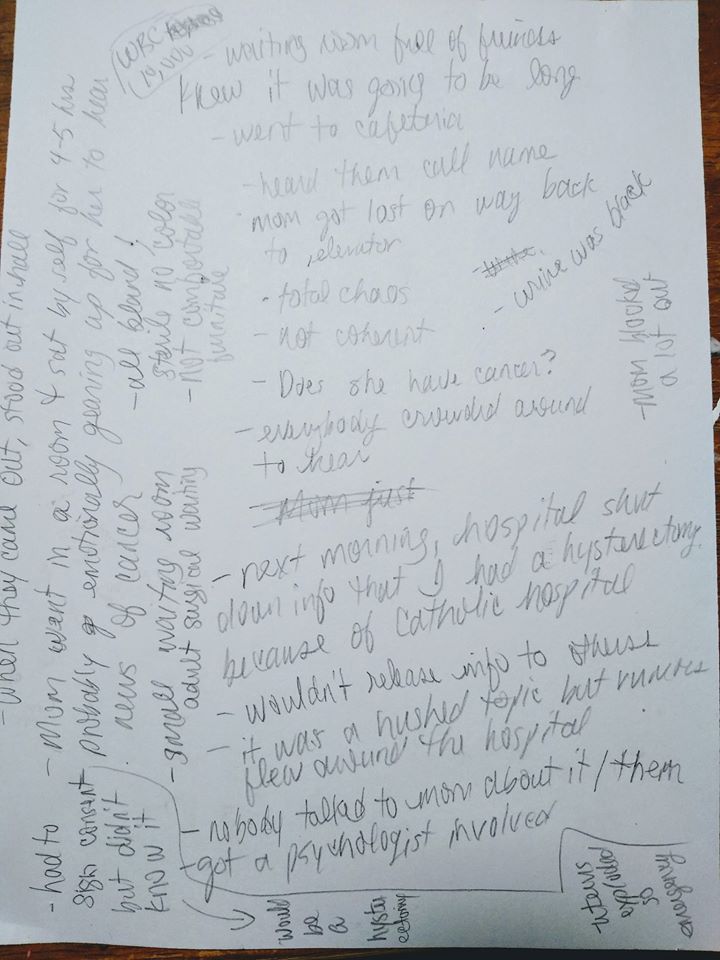 WBC
10,000
- waiting room full of friends
knew it was going to be long
- went to cafeteria
- heard them call name
mom got lost on way back
to elevator
- total chaos
- not coherent
- Does she have cancer?
- everybody crowded around
to hear
- Mom just
- next morning, hospital shut
down info that I had a hysterectomy
because of catholic hospital
- wouldn't release info to others
- it was a hushed topic but rumors
flew around the hospital
- nobody talked to mom about it / them
- got a psychologist involved
- urine was black
- Mom blocked
a lot out
- when they came out, stood out in hall
- Mom went in a room & sat by self for 4-5 hrs
probably emotionally gearing up for her to hear
news of cancer
- all bland!
sterile no color
- not comfortable
furniture
- small waiting room
adult surgical waiting
- had to
sign consent
but didn't
know it
would
be
a
hyster
ectomy
uterus
exploded
so
emergency